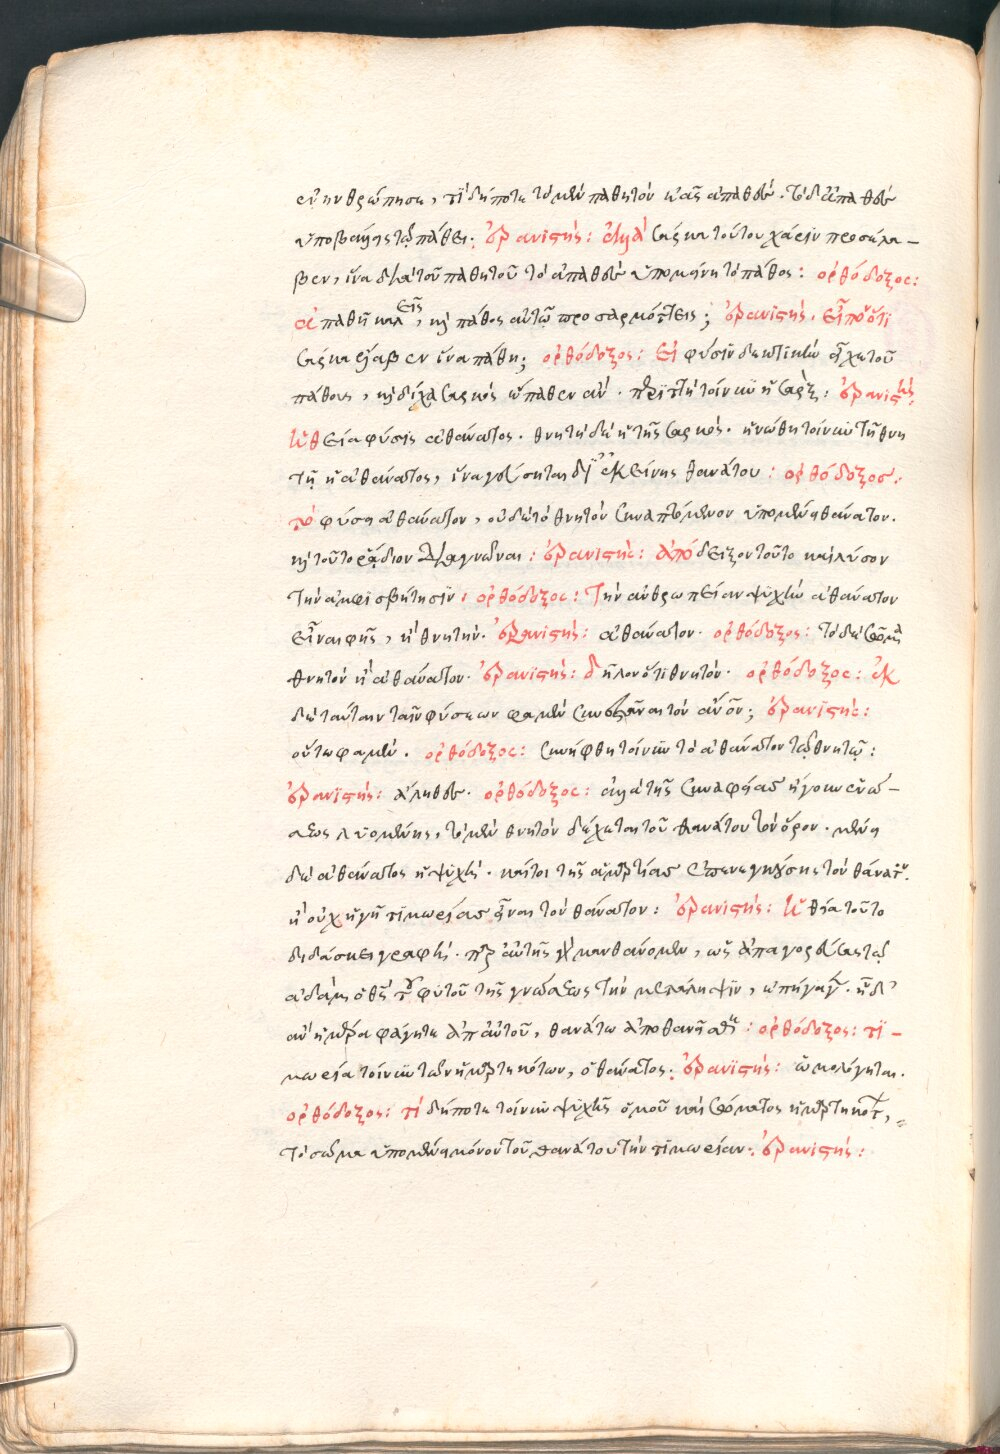 ἐνηνθρώπησε, τί δήποτε τὸ μὲν παθητὸν ἐᾶς ἀπαθὲς. τὸ δ' ἀπαθὲς
ὑποβάλλεις τῷ πάθει; ἐρανιστής: ἀλλὰ σάρκα τούτου χάριν προσέλα-
βεν, ἵνα διὰ τοῦ παθητοῦ τὸ ἀπαθὲς ὑπομείνῃ τὸ πάθος: ὀρθόδοξος:
ἀπαθῆ καλεῖς, καὶ πάθος αὐτῷ προσαρμόττεις; ἐρανιστής. εἶπον ὅτι
σάρκα ἔλαβεν ἵνα πάθῃ; ὀρθόδοξος: εἰ φύσιν δεκτικὴν εἶχε τοῦ
πάθους, καὶ δίχα σαρκὸς ἔπαθεν ἄν. περιττὴ τοίνυν ἡ σάρξ: ἐρανιστής:
ἡ θεία φύσις ἀθάνατος. θνητὴ δὲ ἡ τῆς σαρκός. ἡνώθη τοίνυν τῇ θνη
τῇ ἡ ἀθάνατος, ἵνα γεύσηται δι' ἐκείνης θανάτου: ὀρθόδοξος.
τὸ φύσει ἀθάνατον, οὐδὲ τὸ θνητὸν συναπτόμενον ὑπομένει θάνατον.
καὶ τοῦτο ῥᾴδιον διαγνῶναι: ἐρανιστής: ἀπόδειξον τοῦτο καὶ λύσον
τὴν ἀμφισβήτησιν: ὀρθόδοξος: Τὴν ἀνθρωπείαν ψυχὴν ἀθάνατον
εἶναι φῂς, ἢ θνητήν. ἐρανιστής: ἀθάνατον. ὀρθόδοξος: τὸ δὲ σῶμα
θνητὸν ἢ ἀθάνατον. ἐρανιστής: δῆλον ὅτι θνητόν. ὀρθόδοξος: ἐκ
δὲ τούτων τῶν φύσεων φαμὲν συνεστάναι τὸν ἄνον; ἐρανιστής:
οὕτω φαμέν. ὀρθόδοξος: συνήφθη τοίνυν τὸ ἀθάνατον τῷ θνητῷ:
ἐρανιστής: ἀληθὲς. ὀρθόδοξος: ἀλλὰ τῆς συναφείας ἤγουν ἑνώ-
σεως λυομένης, τὸ μὲν θνητὸν δέχεται τοῦ θανάτου τὸν ὅρον. μένει
δὲ ἀθάνατος ἡ ψυχή. καίτοι τῆς ἁμαρτίας ἐπενεγκούσης τὸν θάνατον.
ἢ οὐχ ἡγῇ τιμωρίας εἶναι τὸν θάνατον: ἐρανιστής: ἡ θεία τοῦτο
διδάσκει γραφή. παρ' αὐτῆς γὰρ μανθάνομεν, ὡς ἀπαγορεύσας τῷ
ἀδὰμ ὁ θς τοῦ φυτοῦ τῆς γνώσεως τὴν μετάληψιν, ἐπήγαγε. ᾗ δ'
ἂν ἡμέρᾳ φάγητε ἀπ' αὐτοῦ, θανάτῳ ἀποθανεῖσθε: ὀρθόδοξος: τι-
μωρία τοίνυν τῶν ἡμαρτηκότων, ὁ θάνατος: ἐρανιστής: ὡμολόγηται.
ὀρθόδοξος: τί δήποτε τοίνυν ψυχῆς ὁμοῦ καὶ σώματος ἡμαρτηκότος,
τὸ σῶμα ὑπομένει μόνον τοῦ θανάτου τὴν τιμωρίαν: ἐρανιστής: